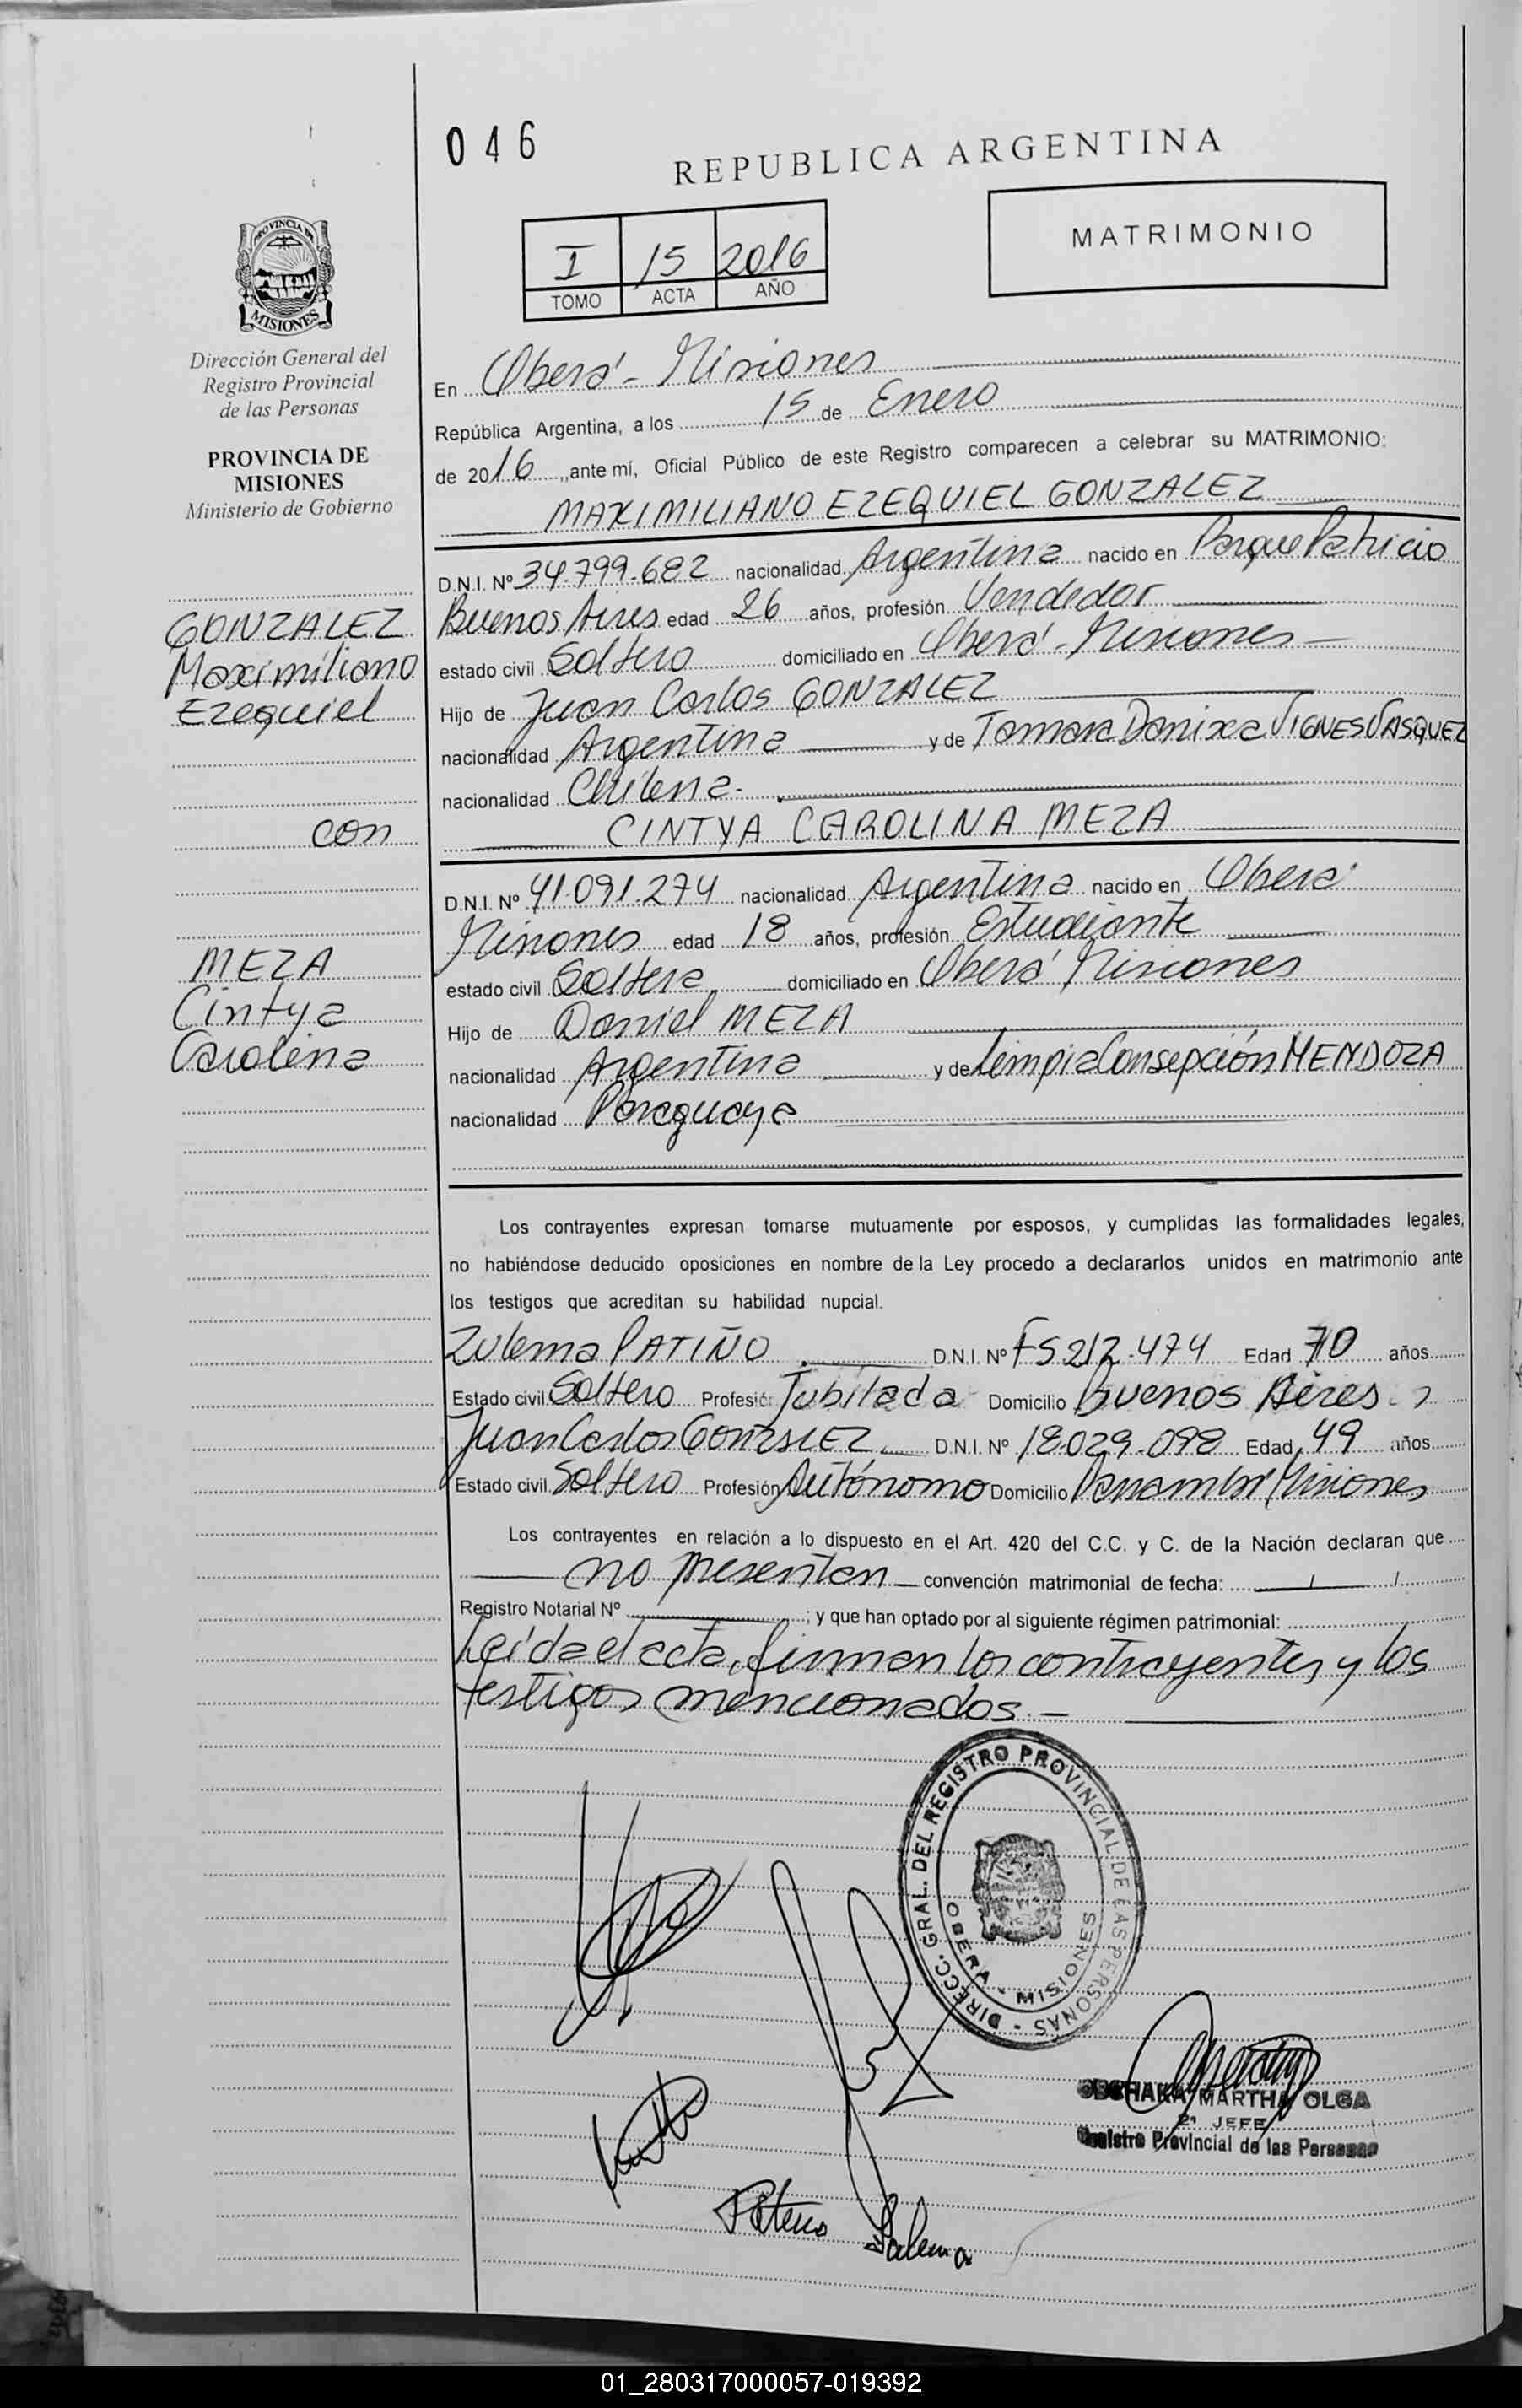 046
REPUBLICA ARGENTINA
MATRIMONIO
I 15 2016
TOMO ACTA AÑO
PROVINCIA DE
MISIONES
Dirección General del
Registro Provincial
de las Personas
PROVINCIA DE
MISIONES
Ministerio de Gobierno
GONZALEZ
Maximiliano
Ezequiel
con
MEZA
Cintya
Carolina
En Oberá - Misiones
República Argentina, a los 15 de Enero
de 2016, ante mí, Oficial Público de este Registro comparecen a celebrar su MATRIMONIO:
MAXIMILIANO EZEQUIEL GONZALEZ
D.N.I. Nº 34.799.682 nacionalidad Argentina nacido en Parque Patricio
Buenos Aires edad 26 años, profesión Vendedor
estado civil Soltero domiciliado en Oberá - Misiones
Hijo de Juan Carlos GONZALEZ
nacionalidad Argentina y de Tamara Danixa VIGNES VASQUEZ
nacionalidad Chilena.
CINTYA CAROLINA MEZA
D.N.I. Nº 41.091.274 nacionalidad Argentina nacido en Oberá
Misiones edad 18 años, profesión Estudiante
estado civil Soltera domiciliado en Oberá Misiones
Hijo de Daniel MEZA
nacionalidad Argentina y de Limpia Consepción MENDOZA
nacionalidad Paraguaya
Los contrayentes expresan tomarse mutuamente por esposos, y cumplidas las formalidades legales,
no habiéndose deducido oposiciones en nombre de la Ley procedo a declararlos unidos en matrimonio ante
los testigos que acreditan su habilidad nupcial.
Zulema PATIÑO D.N.I. Nº F5.212.474 Edad 70 años
Estado civil Soltero Profesión Jubilada Domicilio Buenos Aires. y
Juan Carlos GONZALEZ D.N.I. Nº 18.029.098 Edad 49 años
Estado civil Soltero Profesión Autónomo Domicilio Panambí Misiones
Los contrayentes en relación a lo dispuesto en el Art. 420 del C.C. y C. de la Nación declaran que
no presentan convención matrimonial de fecha: / /
Registro Notarial Nº ; y que han optado por al siguiente régimen patrimonial:
Leída el acta, firman los contrayentes y los
testigos mencionados -
DIRECC. GRAL. DEL REGISTRO PROVINCIAL DE LAS PERSONAS -
OBERA - MISIONES
MARTHA OLGA
2º JEFE
Registro Provincial de las Personas
01_280317000057-019392